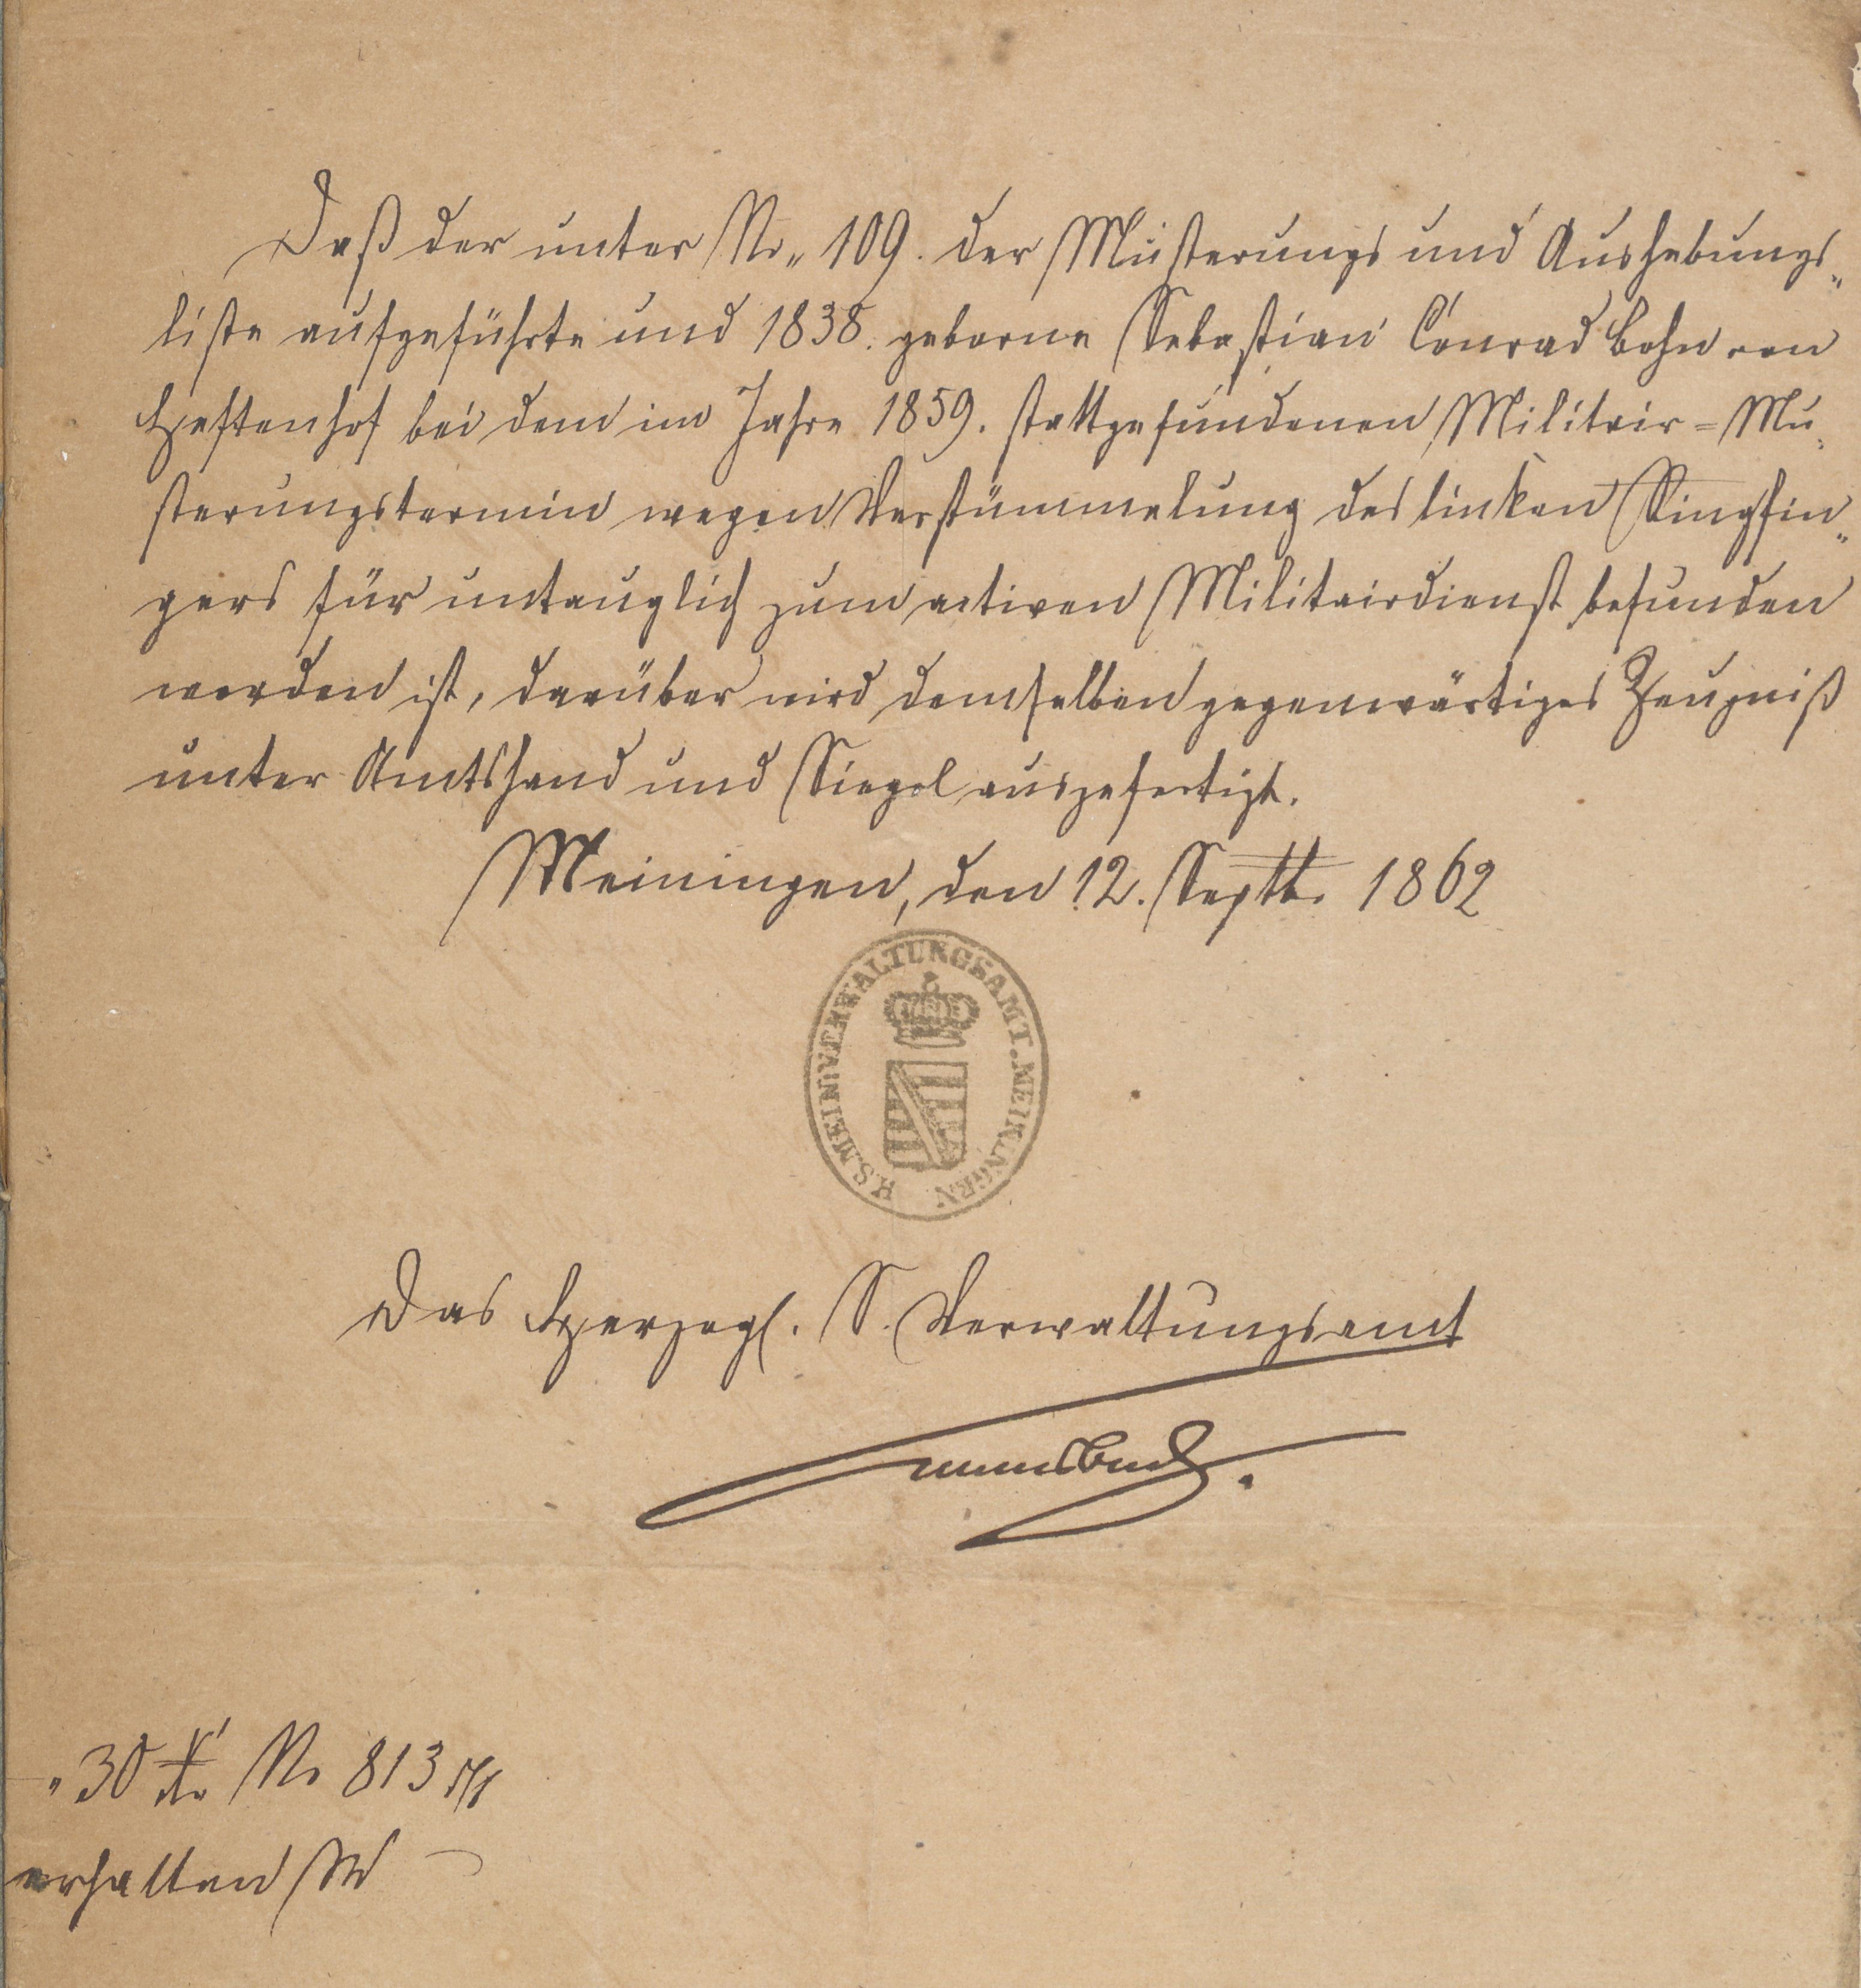 Daß der unter No„ 109. der Musterungs und Aushebungs„
liste aufgeführte und 1838. geborne Sebastian Conrad Bohn von
Heftenhof bei dem im Jahre 1859. stattgefundenen Militair=Mu„
sterungstermin wegen Verstümmelung des linken Ringfin„
gers für untauglich zum activen Militairdienst befunden
worden ist, darüber wird demselben gegenwärtiges Zeugniß
unter Amtshand und Siegel ausgefertigt.
Meiningen, den 12. Septb. 1862
H.S.MEIN:VERWALTUNGSAMT.MEININGEN
Das Herzogl. S. Verwaltungsamt
„30 Xr No 813
erhalten